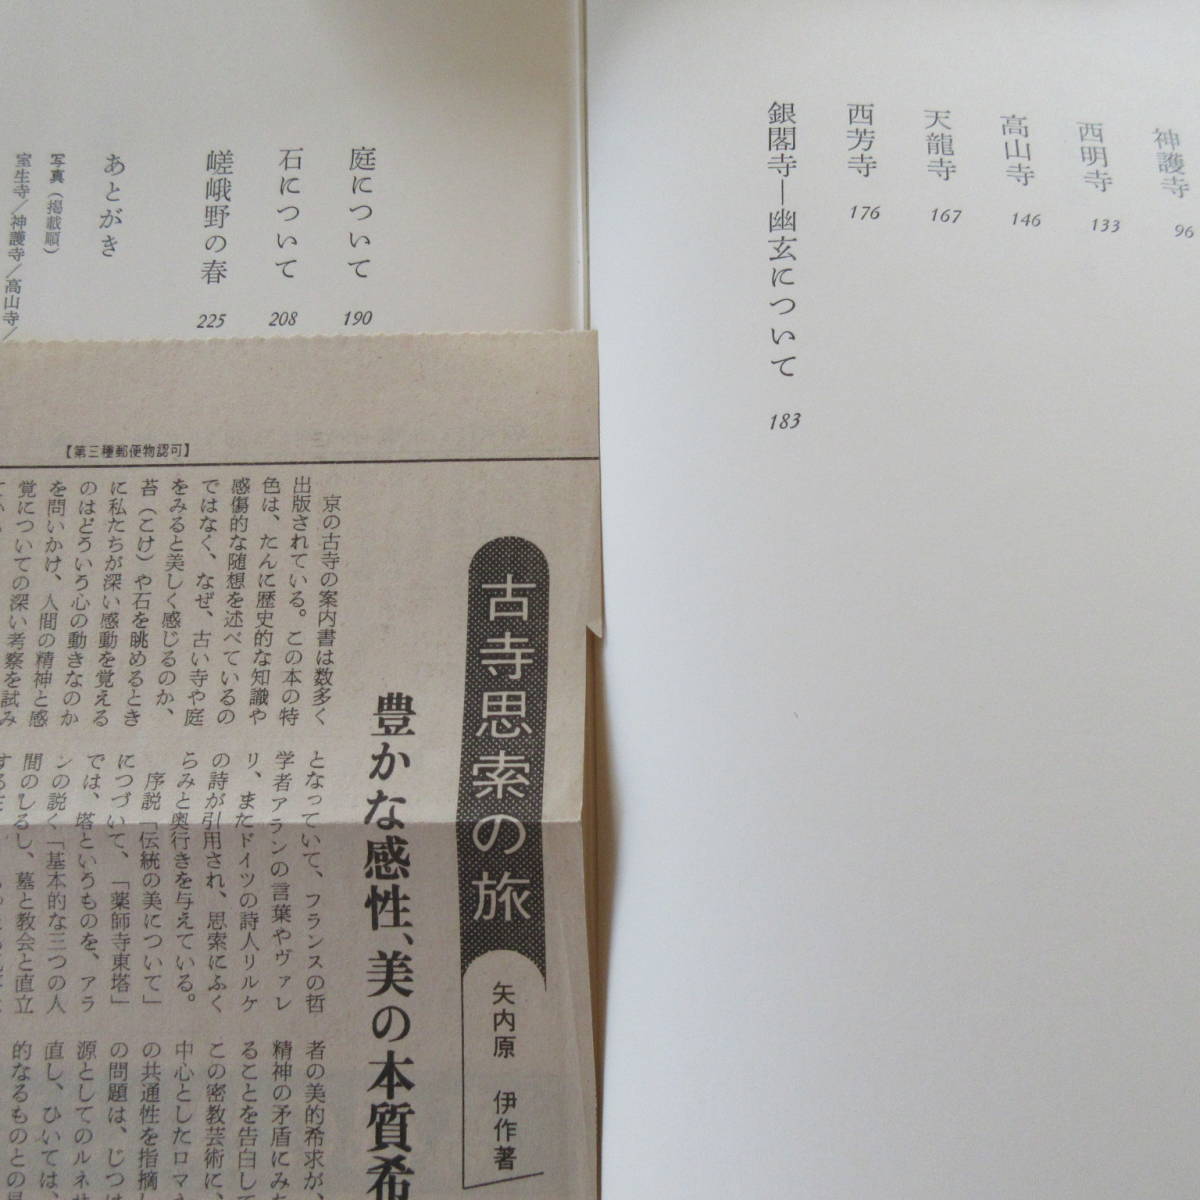 神護寺 96
西明寺 133
高山寺 146
天龍寺 167
西芳寺 176
銀閣寺―幽玄について 183
庭について 190
石について 208
嵯峨野の春 225
あとがき
写真(掲載順)
室生寺/神護寺/高山寺/
【第三種郵便物認可】
古寺思索の旅
矢内原 伊作著
豊かな感性、美の本質希
京の古寺の案内書は数多く
出版されている。この本の特
色は、たんに歴史的な知識や
感傷的な随想を述べているの
ではなく、なぜ、古い寺や庭
をみると美しく感じるのか、
苔(こけ)や石を眺めるとき
に私たちが深い感動を覚える
のはどういう心の動きなのか
を問いかけ、人間の精神と感
覚についての深い考察を試み
となっていて、フランスの哲
学者アランの言葉やヴァレ
リ、またドイツの詩人リルケ
の詩が引用され、思索にふく
らみと奥行きを与えている。
序説「伝統の美について」
につづいて、「薬師寺東塔」
では、塔というものを、アラ
ンの説く「基本的な三つの人
間のしるし、墓と教会と直立
者の美的希求が、
精神の矛盾にみち
ることを告白して
この密教芸術に、
中心としたロマネ
の共通性を指摘し
の問題は、じつは
源としてのルネサ
直し、ひいては、
的なるものとの